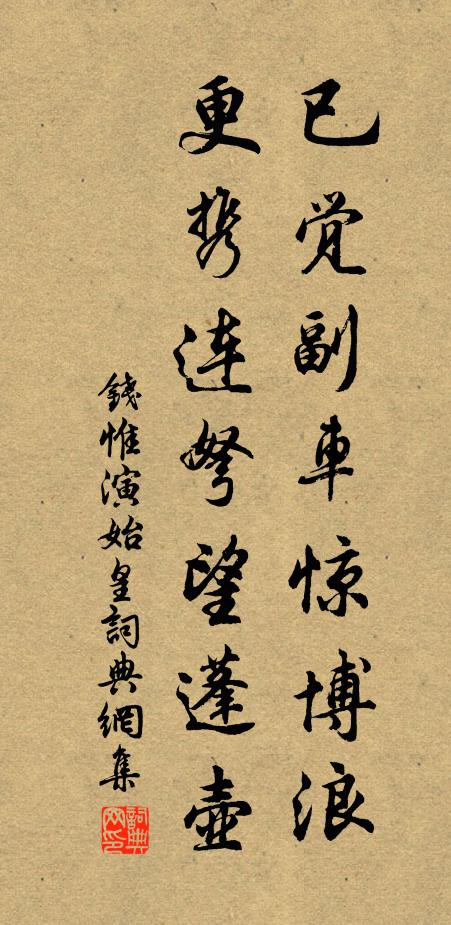 已觉副車惊博浪
更携连弩望蓬壺
錢惟演始皇詞典網集
詞典网印